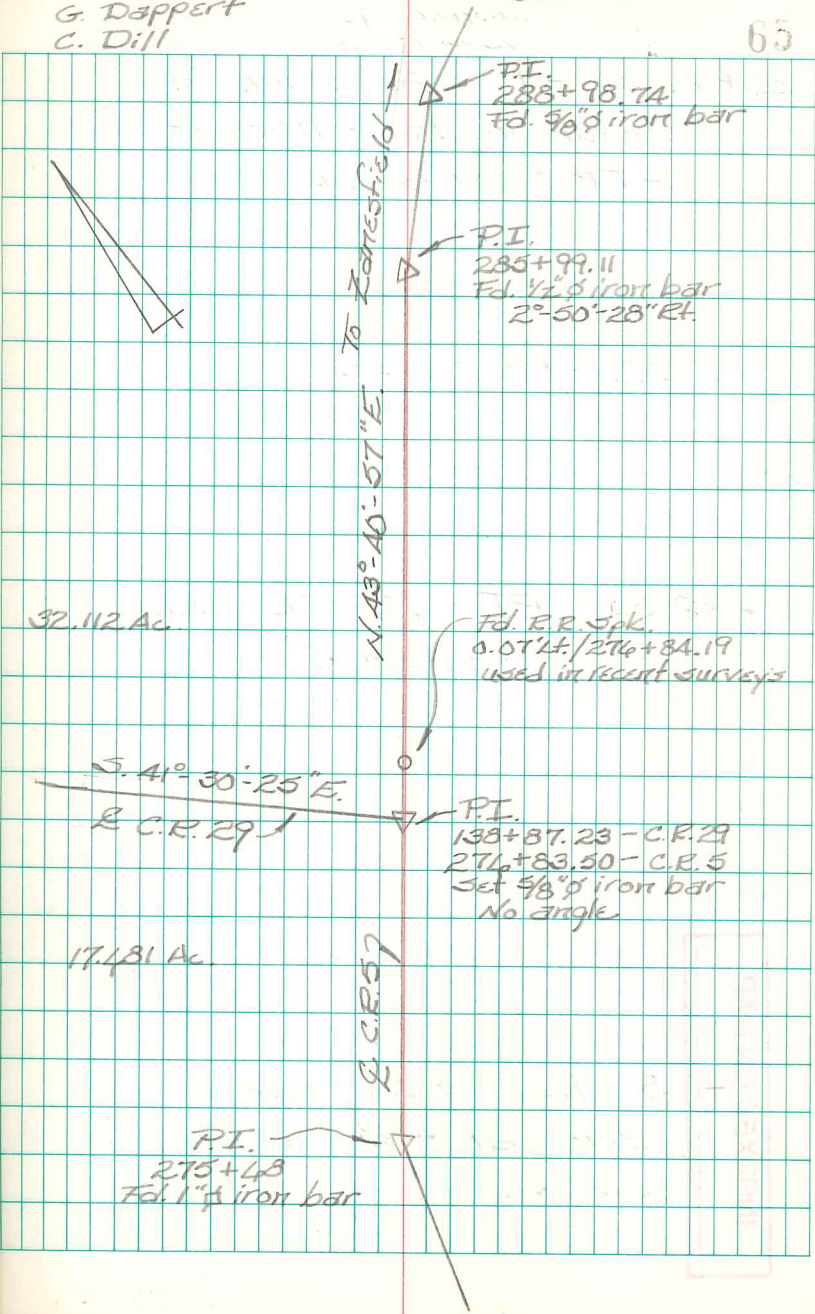 G. Dappert
C. Dill
65
P.I.
288+98.74
Fd. 5/8"ø iron bar
To Zanesfield
P.I.
285+99.11
Fd. 1/2"ø iron bar
2°-50'-28" Rt.
N. 43°-40'-57" E.
32.112 Ac.
Fd. R.R. Spk.
0.07' Lt./276+84.19
used in recent surveys
S. 41°-30'-25" E.
℄ C.R. 29
P.I.
138+87.23 - C.R. 29
276+83.50 - C.R. 5
Set 5/8"ø iron bar
No angle
17.681 Ac.
℄ C.R. 5
P.I.
275+68
Fd. 1"ø iron bar